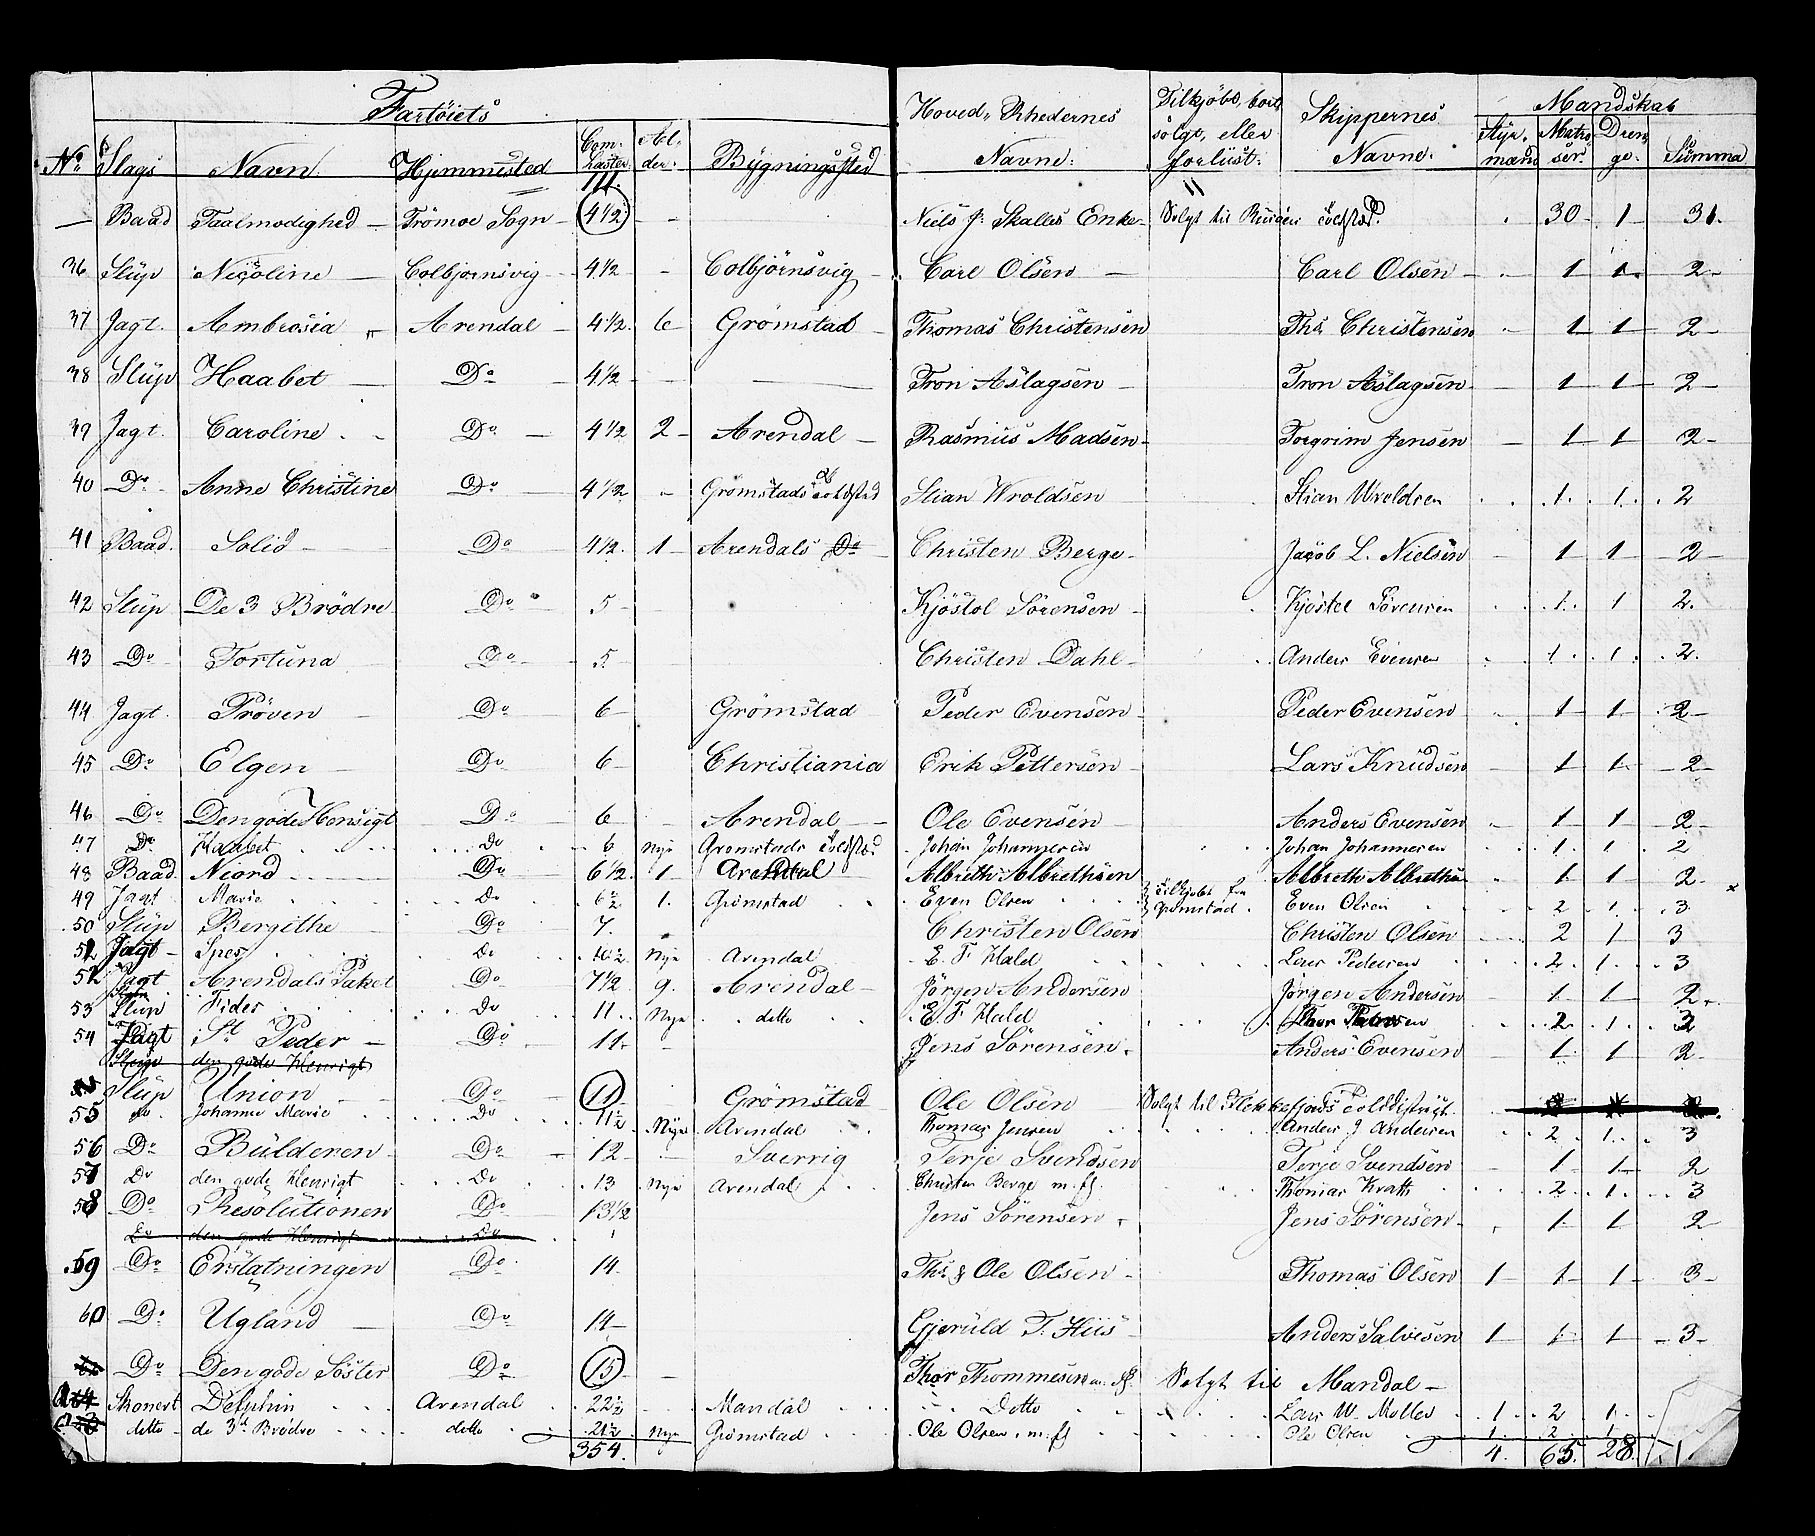 Fartöiets Hoved- Rhedernes Tilkjöbt, bort Skippernes Mandskab
No Slags Navn Hjemmested Com. Læster Al- der: Bÿgningssted Navne: solgt, eller forliist: Navne: Stÿr- mænd Matro- ser. Dren- ge. Summa
111. 11
— Baad Taalmodighed — Tromoe Sogn 4 1/2 - - Niels J. Skalles Enke Solgt til Toldsted. 30 1 31.
36 Slüp Nicoline — Colbjornsvig 4 1/2 - Colbjörnsvig Carl Olsen — Carl Olsen 1 1 2
37 Jagt. Ambrosia " Arendal 4 1/2 6 Grömstad Thomas Christensen Ths Christensen 1 1 2
38 Slüp Haabet — Do 4 1/2 - — Tron Aslagsen Tron Aslagsen 1 1 2
39 Jagt. Caroline Do 4 1/2 2 Arendal Rasmüs Madsen Torgrim Jensen 1 1 2
40 Do Anne Christine Do 4 1/2 - Grömstads Toldsted Stian Wroldsen Stian Wroldsen 1 1 2
41 Baad. Solid Do 4 1/2 1 Arendals Do Christen Berge Jacob L. Nielsen 1 1 2
42 Slüp De 3 Brödre Do 5 Kjöstol Sörensen Kjöstel Sörensen 1 1 2
43 Do Fortuna Do 5 Christen Dahl Anders Evensen 1 1 2
44 Jagt. Pröven Do 6 Grömstad Peder Evensen Peder Evensen 1 1 2
45 Do Elgen Do 6 Christiania Erik Pettersen Lars Knüdsen 1 1 2
46 Do Den gode Hensigt Do 6 Arendal Ole Evensen Anders Evensen 1 1 2
47 Do Haabet Do 6 Nye Gromstads Toldsted Johan Johannesen Johan Johannesen 1 1 2
48 Baad Niord Do 6 1/2 1 Arendal Albreth Albrethsen Albreth Albrethsen 1 1 2
49 Jagt Marie Do 6 1/2 1. Grömstad Even Olsen Tilkjöbt fra Grömstad Even Olsen 2 1 3
50 Slüp Bergithe Do 7. Christen Olsen Christen Olsen 2 1 3
51 Jagt Spes Do 10 1/2 Nye Arendal E. F. Hald Lars Pedersen 2 1 3
52 Jagt Arendals Paket Do 7 1/2 9. Arendal Jörgen Andersen Jörgen Andersen 1 1 2
53 Slup Fider Do 11 Nye detto E F Hald 2 1 3
54 Jagt St Peder Do 11 Jens Sörensen Anders Evensen 1 1 2
den gode Hensigt
Slüp Union Do 11 Grömstad Ole Olsen Solgt til Flekkefjords Tolddistrigt
55 do Johanne Marie Do 11 1/2 Nye Arendal Thomas Jensen Anders J Andersen 2 1 3
56 Do Bülderen Do 12 Sverrig Terje Svendsen Terje Svendsen 1 1 2
57 Do den gode Hensigt Do 13 Nye Arendal Christen Berge m. fl. Thomas Krath 2 1 3
58 Do Resolütionen Do 13 1/2 Jens Sörensen Jens Sörensen 1 1 2
Do den gode Hensigt Do
59 Do Erstatningen Do 14 Ths & Ole Olsen Thomas Olsen 1 1 1 3
60 Do Ugland Do 14 Gjerüld T. Hiis Anders Salvesen 1 1 1 3
Do Den gode Söster Do 15 Thor Thommesen m. fl. Solgt til Mandal
Skonert Delphin Arendal 22 1/2 Mandal Detto Lars W. Molles 1 2 1
detto de 3de Brødre detto 21 1/2 Nye Grömstad Ole Olsen m. fl Ole Olsen 1 2 1
354. 4. 65. 28.